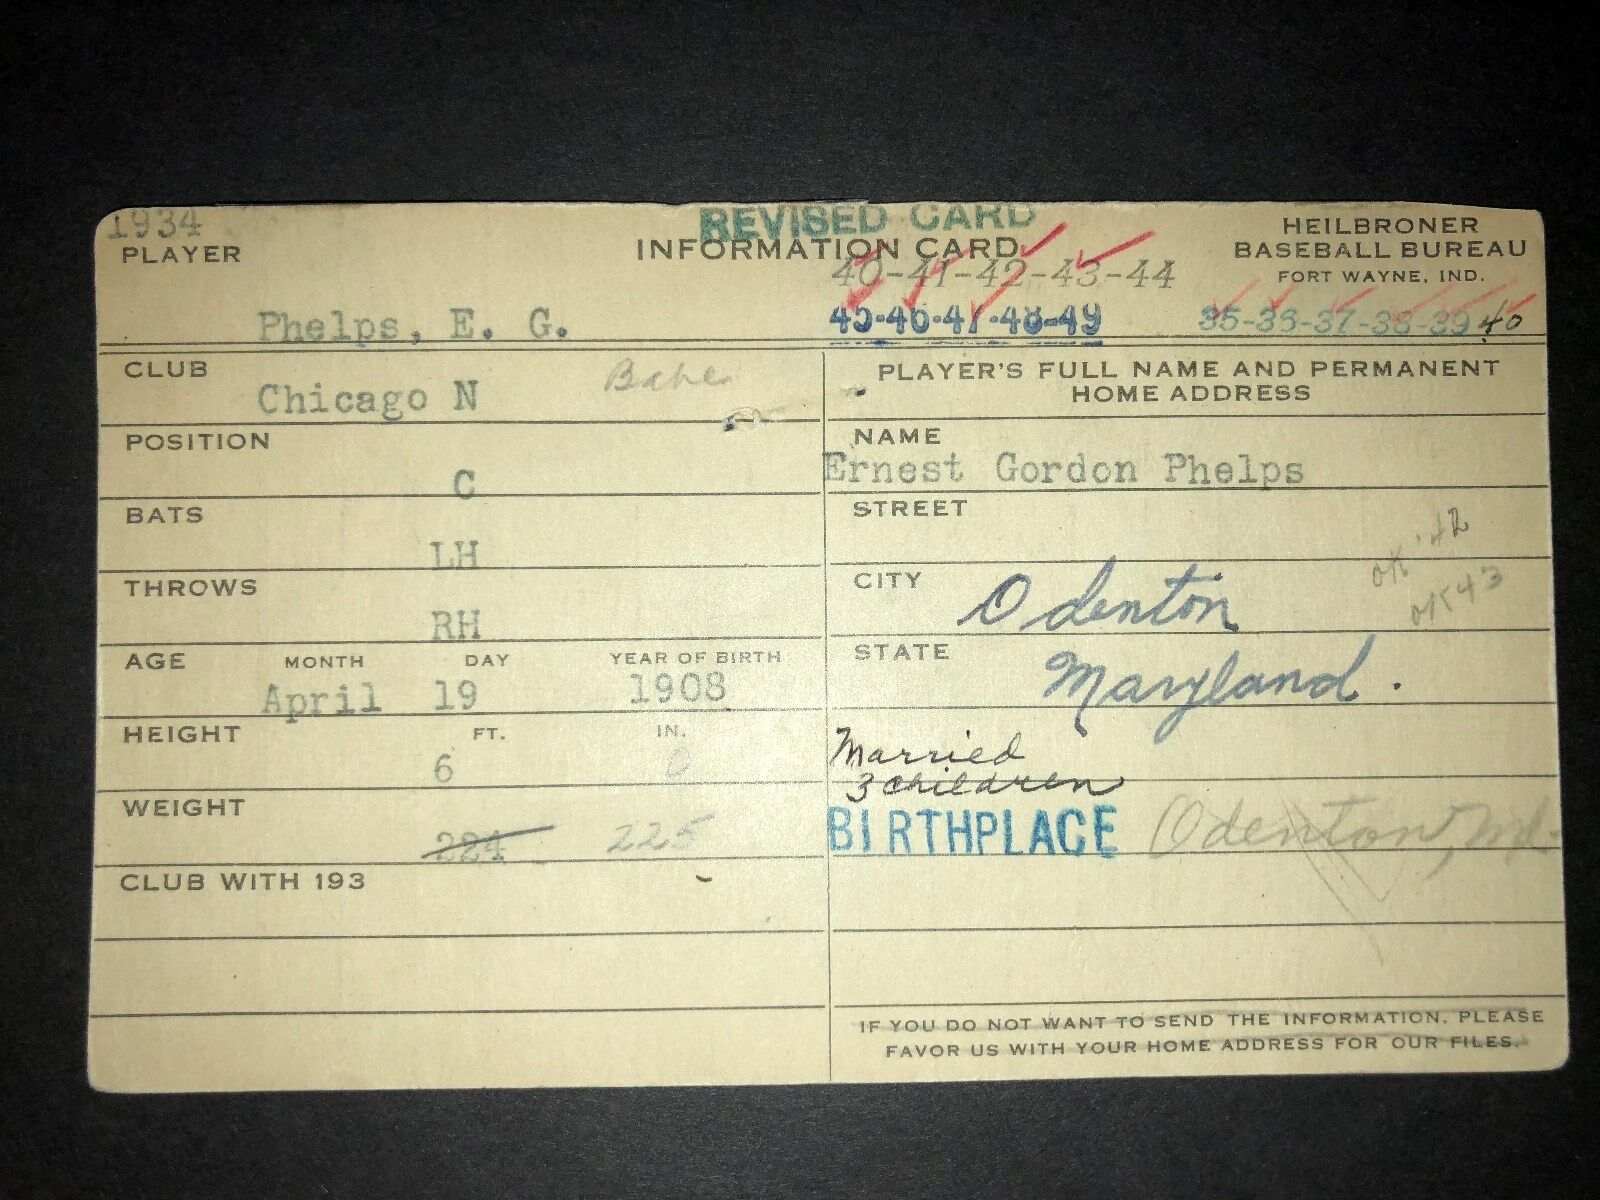 1934
REVISED CARD
PLAYER
INFORMATION CARD
HEILBRONER
BASEBALL BUREAU
FORT WAYNE, IND.
40-41-42-43-44
Phelps, E. G.
45-46-47-48-49
35-36-37-38-39 40
CLUB
Chicago N
Babe
PLAYER'S FULL NAME AND PERMANENT
HOME ADDRESS
POSITION
C
NAME
Ernest Gordon Phelps
BATS
LH
STREET
OK '42
THROWS
RH
CITY
Odenton
OK 43
AGE MONTH DAY YEAR OF BIRTH
April 19 1908
STATE
Maryland.
HEIGHT FT. IN.
6 0
Married
3 children
WEIGHT
224 225
BIRTHPLACE Odenton, Md.
CLUB WITH 193
IF YOU DO NOT WANT TO SEND THE INFORMATION, PLEASE
FAVOR US WITH YOUR HOME ADDRESS FOR OUR FILES.